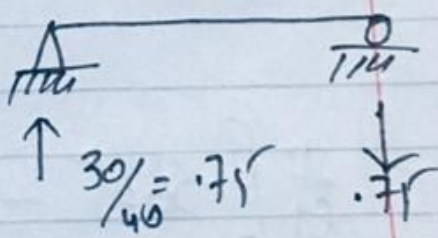 30/40 = .75
.75